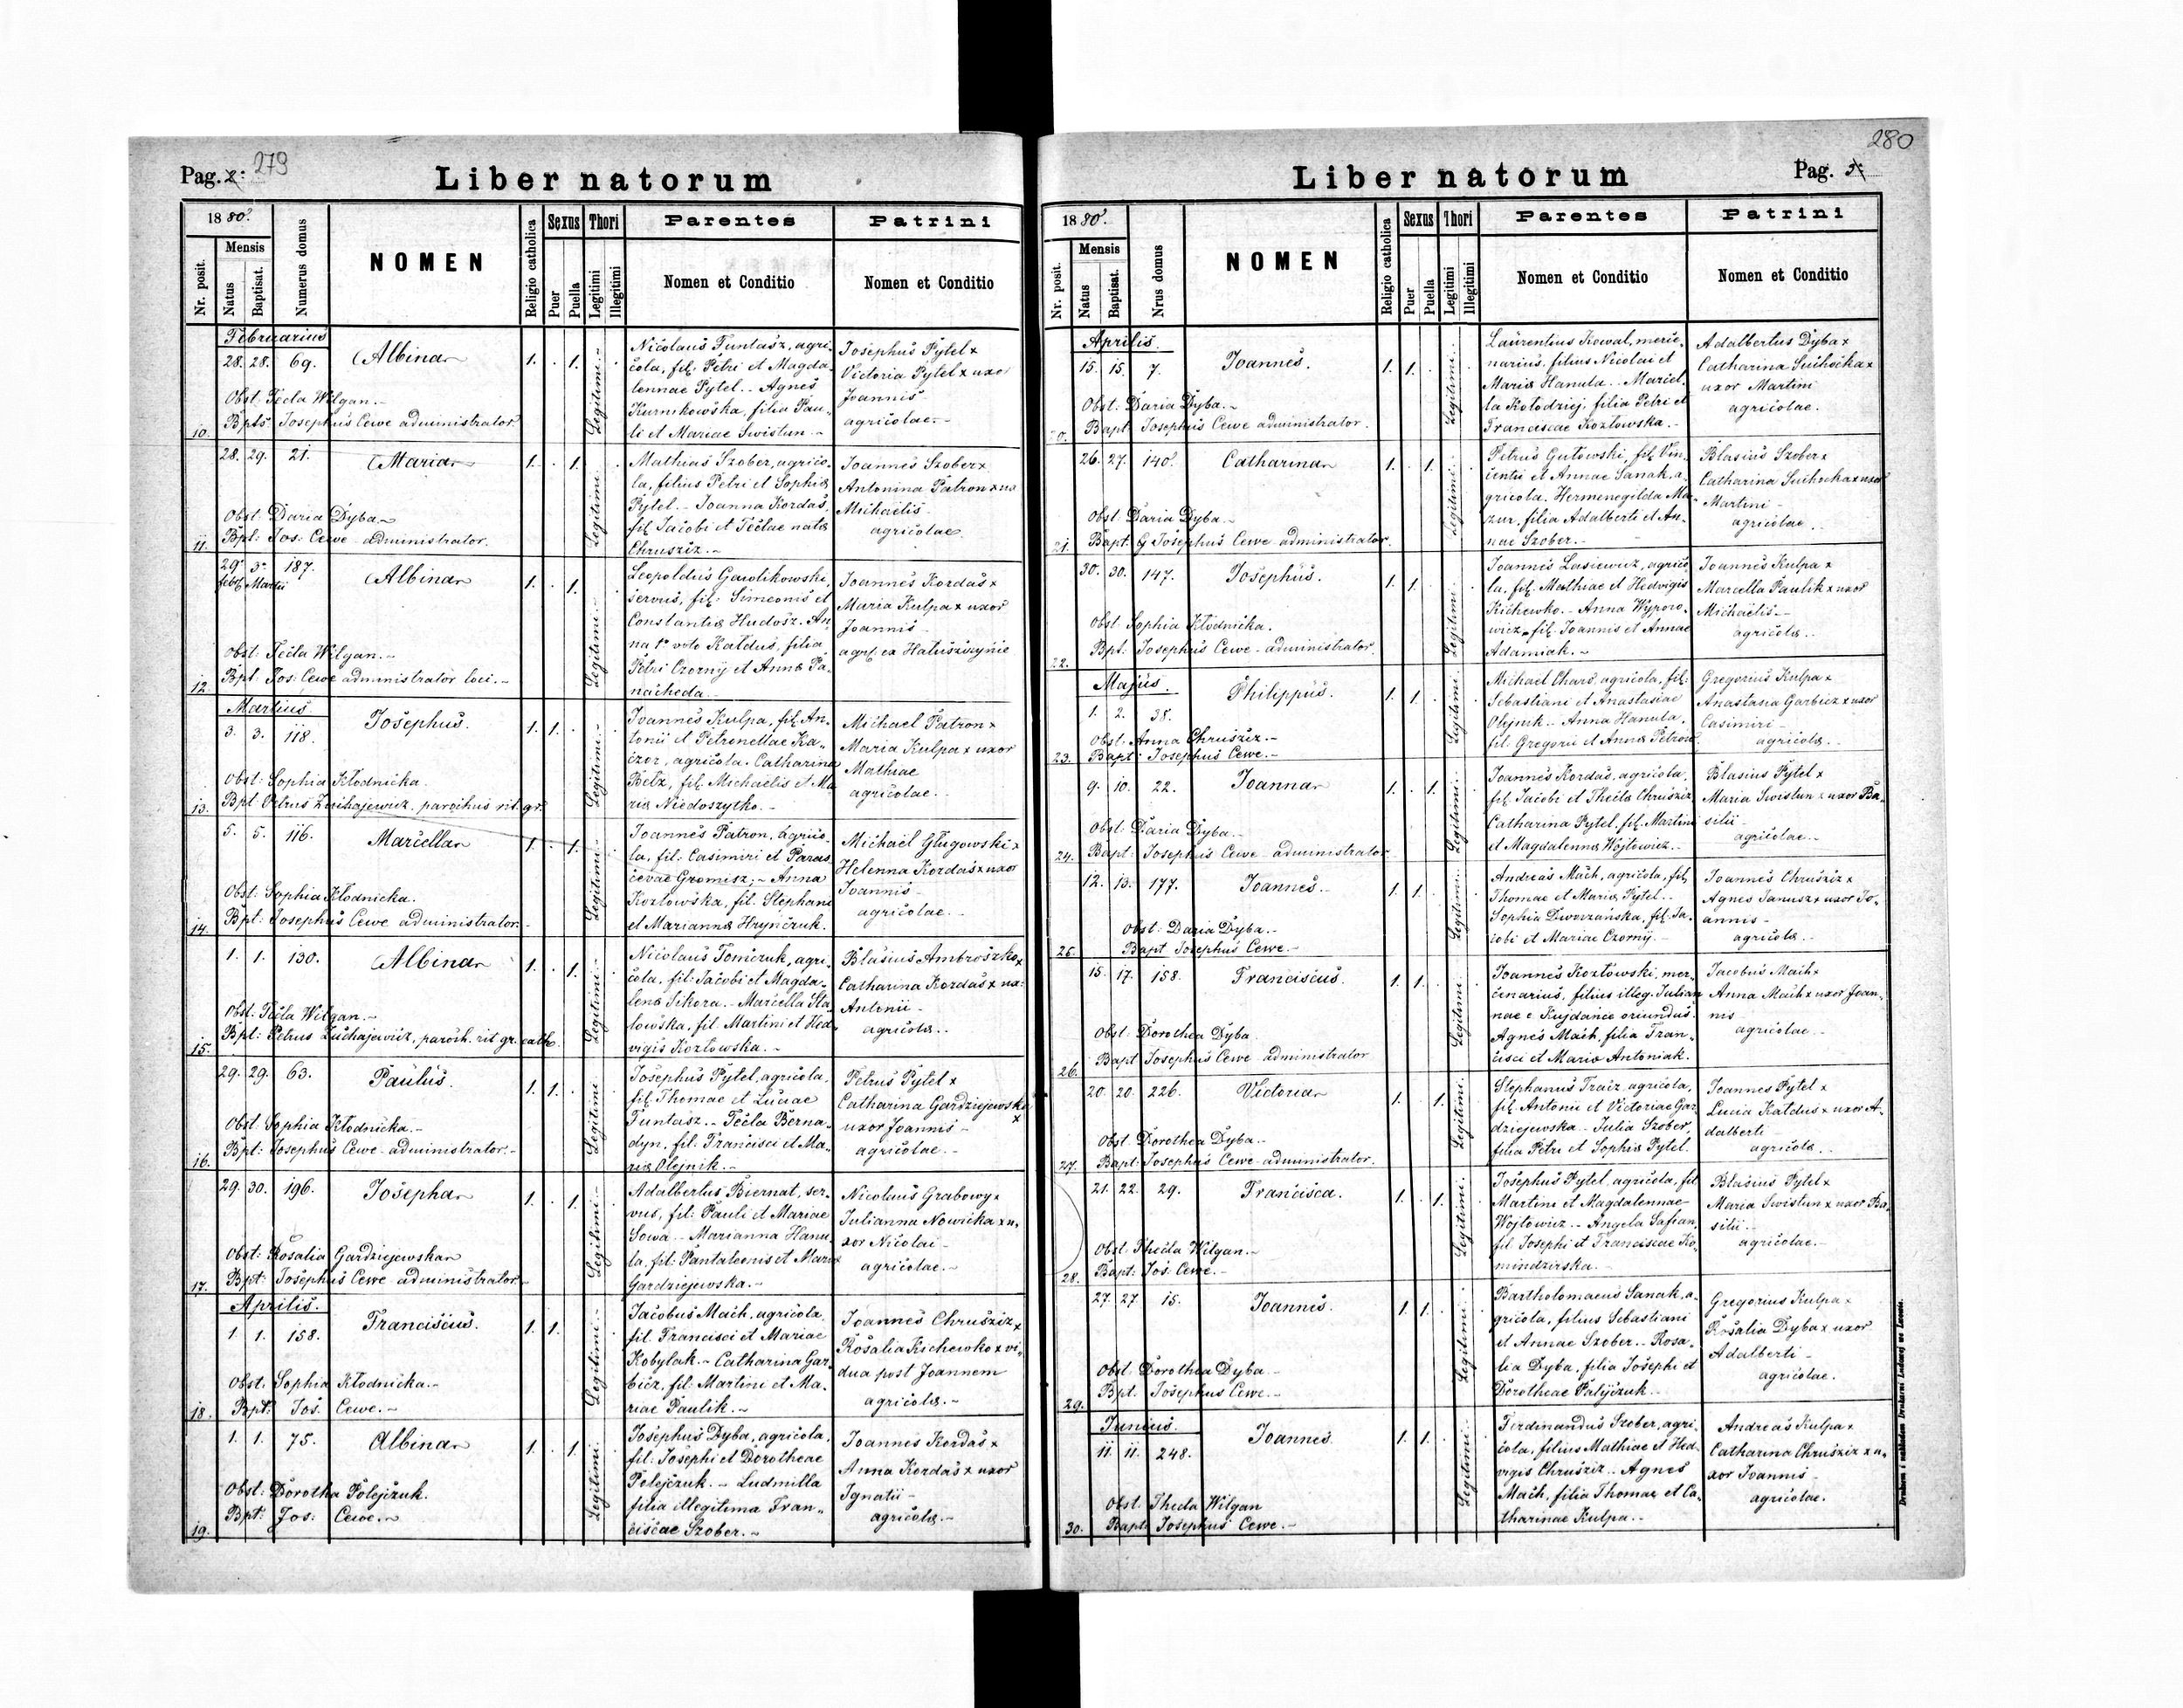 Pag. 2: 279
Liber natorum
1880.
Nr. posit.
Mensis
Natus
Baptisat.
Numerus domus
NOMEN
Religio catholica
Sexus
Puer
Puella
Thori
Legitimi
Illegitimi
Parentes
Nomen et Conditio
Patrini
Nomen et Conditio
Februarius
10. 28. 28. 69. Albina 1. . 1. Legitimi
Obst: Tecla Wilgan.
Bpts: Josephus Cewe administrator
Nicolaus Funtasz, agri-
cola, fil: Petri et Magda-
lennae Pytel. - Agnes
Kurnikowska, filia Pau-
li et Mariae Swistun
Josephus Pytel x
Victoria Pytel x uxor
Joannis
agricolae.
11. 28. 29. 21. Maria 1. . 1. Legitimi
Obst: Daria Dyba
Bpt: Jos: Cewe administrator.
Mathias Szober, agrico-
la, filius Petri et Sophiae
Pytel. - Joanna Kordas,
fil: Jacobi et Teclae natae
Chruszcz.
Joannes Szober x
Antonina Patron x ux
Michaelis
agricolae
12. 29. 3. 187. Albina 1. . 1. Legitimi
febr. Martii
Obst: Tecla Wilgan.
Bpt: Jos: Cewe administrator loci.
Leopoldus Gawlikowski,
servus, fil: Simeonis et
Constantiae Hudosz. An-
na 1o voto Kaldus, filia
Petri Czornij et Annae Pa-
nacheda.
Joannes Kordas x
Maria Kulpa x uxor
Joannis
agr. ex Hatuszczynie
Martius
13. 3. 3. 118. Josephus. 1. 1. . Legitimi
Obst: Sophia Kłodnicka.
Bpt: Petrus Zuchajewicz, parochus rit. gr.
Joannes Kulpa, fil: An-
tonii et Petronellae Ka-
czor, agricola. Catharina
Betz, fil: Michaelis et Ma
riae Niedoszytko.
Michael Patron x
Maria Kulpa x uxor
Mathiae
agricolae.
14. 5. 5. 116. Marcella 1. . 1. Legitimi
Obst: Sophia Kłodnicka.
Bpt: Josephus Cewe administrator.
Joannes Patron, agrico-
la, fil: Casimiri et Paras
cevae Gromisz; - Anna
Kozłowska, fil: Stephani
et Mariannae Hryńczuk.
Michael Gługowski x
Helenna Kordas x uxor
Joannis
agricolae.
15. 1. 1. 130. Albina 1. . 1. Legitimi
Obst: Tecla Wilgan.
Bpt: Petrus Zuchajewicz, paroch. rit. gr. cath.
Nicolaus Tomczuk, agri-
cola, fil: Jacobi et Magda-
lenae Sikora. - Marcella Sta-
lowska, fil: Martini et Hed-
vigis Kozłowska.
Blasius Ambroszko x
Catharina Kordas x ux:
Antonii
agricolae.
16. 29. 29. 63. Paulus. 1. 1. . Legitimi
Obst: Sophia Kłodnicka.
Bpt: Josephus Cewe administrator.
Josephus Pytel, agricola,
fil: Thomae et Luciae
Funtasz. - Tecla Berna-
dyn, fil: Francisci et Ma-
riae Olejnik.
Petrus Pytel x
Catharina Gardziejewska x
uxor Joannis
agricolae.
17. 29. 30. 196. Josepha 1. . 1. Legitimi
Obst: Rosalia Gardziejewska
Bpt: Josephus Cewe administrator
Adalbertus Biernat, ser-
vus, fil: Pauli et Mariae
Sowa. - Marianna Hanu-
la, fil: Pantaleonis et Mariae
Gardziejewska.
Nicolaus Grabowy x
Julianna Nowicka x u-
xor Nicolai
agricolae.
Aprilis.
18. 1. 1. 158. Franciscus. 1. 1. . Legitimi
Obst: Sophia Kłodnicka.
Bpt: Jos. Cewe.
Jacobus Mach, agricola,
fil: Francisci et Mariae
Kobylak. - Catharina Gar-
bicz, fil: Martini et Ma-
riae Paulik.
Joannes Chruszcz x
Rosalia Kichewko x vi-
dua post Joannem
agricolae.
19. 1. 1. 75. Albina 1. . 1. Legitimi
Obst: Dorotha Polejczuk.
Bpt: Jos: Cewe.
Josephus Dyba, agricola,
fil: Josephi et Dorotheae
Polejczuk. - Ludmilla
filia illegitima Fran-
ciscae Szober.
Joannes Kordas x
Anna Kordas x uxor
Ignatii
agricolae.
280
Liber natorum
Pag. 3:
1880.
Nr. posit.
Mensis
Natus
Baptisat.
Nrus domus
NOMEN
Religio catholica
Sexus
Puer
Puella
Thori
Legitimi
Illegitimi
Parentes
Nomen et Conditio
Patrini
Nomen et Conditio
Aprilis.
20. 15. 15. 7. Joannes. 1. 1. . Legitimi
Obst: Daria Dyba.
Bapt: Josephus Cewe administrator.
Laurentius Kowal, merce-
narius, filius Nicolai et
Mariae Hanula. - Marcel-
la Kołodziej, filia Petri et
Franciscae Kozłowska.
Adalbertus Dyba x
Catharina Suchocka x
uxor Martini
agricolae.
21. 26. 27. 140. Catharina 1. . 1. Legitimi
Obst: Daria Dyba
Bapt: Josephus Cewe administrator.
Petrus Gutowski, fil: Vin-
centii et Annae Sanak, a-
gricola. Hermenegilda Ma-
zur, filia Adalberti et An-
nae Szober.
Blasius Szober x
Catharina Suchocka x uxor
Martini
agricolae
22. 30. 30. 147. Josephus. 1. 1. . Legitimi
Obst: Sophia Kłodnicka.
Bpt: Josephus Cewe administrator.
Joannes Lasiewicz, agrico-
la, fil: Mathiae et Hedvigis
Kichewko. - Anna Wyporo-
wicz, fil: Joannis et Annae
Adamiak.
Joannes Kulpa x
Marcella Paulik x uxor
Michaelis
agricolae.
Majus.
23. 1. 2. 38. Philippus. 1. 1. . Legitimi
Obst: Anna Chruszcz.
Bapt: Josephus Cewe.
Michael Charo, agricola, fil:
Sebastiani et Anastasiae
Olejnik. - Anna Hanula,
fil: Gregorii et Annae Petrow
Gregorius Kulpa x
Anastasia Garbicz x uxor
Casimiri
agricolae.
24. 9. 10. 22. Joanna 1. . 1. Legitimi
Obst: Daria Dyba.
Bapt: Josephus Cewe administrator
Joannes Kordas, agricola,
fil: Jacobi et Theclae Chruszcz
Catharina Pytel, fil: Martini
et Magdalennae Wójtowicz.
Blasius Pytel x
Maria Swistun x uxor Ba-
silii
agricolae.
25. 12. 13. 177. Joannes. 1. 1. . Legitimi
Obst: Daria Dyba.
Bapt Josephus Cewe.
Andreas Mach, agricola, fil:
Thomae et Mariae Pytel.
Sophia Dworzańska, fil: Ja-
cobi et Mariae Czornij.
Joannes Chruszcz x
Agnes Janusz x uxor Jo-
annis
agricolae.
26. 15. 17. 158. Franciscus. 1. 1. . Legitimi
Obst: Dorothea Dyba
Bapt Josephus Cewe administrator
Joannes Kozłowski, mer-
cenarius, filius illeg. Julian
nae e Kujdance oriundus.
Agnes Mach, filia Fran-
cisci et Mariae Antoniak.
Jacobus Mach x
Anna Mach x uxor Joan-
nis
agricolae.
27. 20. 20. 226. Victoria 1. . 1. Legitimi
Obst: Dorothea Dyba.
Bapt: Josephus Cewe administrator.
Stephanus Tracz, agricola,
fil: Antonii et Victoriae Gar-
dziejewska. - Julia Szober,
filia Petri et Sophiae Pytel.
Joannes Pytel x
Lucia Kaldus x uxor A-
dalberti
agricolae.
28. 21. 22. 29. Francisca. 1. . 1. Legitimi
Obst: Thecla Wilgan.
Bapt: Jos: Cewe.
Josephus Pytel, agricola, fil
Martini et Magdalennae
Wojtowicz. - Angela Safian,
fil: Josephi et Franciscae Ko-
mindzirska.
Blasius Pytel x
Maria Swistun x uxor Ba-
silii
agricolae.
29. 27. 27. 15. Joannes. 1. 1. . Legitimi
Obst: Dorothea Dyba
Bpt: Josephus Cewe.
Bartholomaeus Sanak, a-
gricola, filius Sebastiani
et Annae Szober. - Rosa-
lia Dyba, filia Josephi et
Dorotheae Palijczuk.
Gregorius Kulpa x
Rosalia Dyba x uxor
Adalberti
agricolae.
Junius.
30. 11. 11. 248. Joannes. 1. 1. . Legitimi
Obst: Thecla Wilgan
Bapt: Josephus Cewe.
Ferdinandus Szober, agri-
cola, filius Mathiae et Hed-
vigis Chruszcz. - Agnes
Mach, filia Thomae et Ca-
tharinae Kulpa.
Andreas Kulpa x
Catharina Chruszcz x u-
xor Joannis
agricolae.
Drukiem i nakładem Drukarni Ludowej we Lwowie.